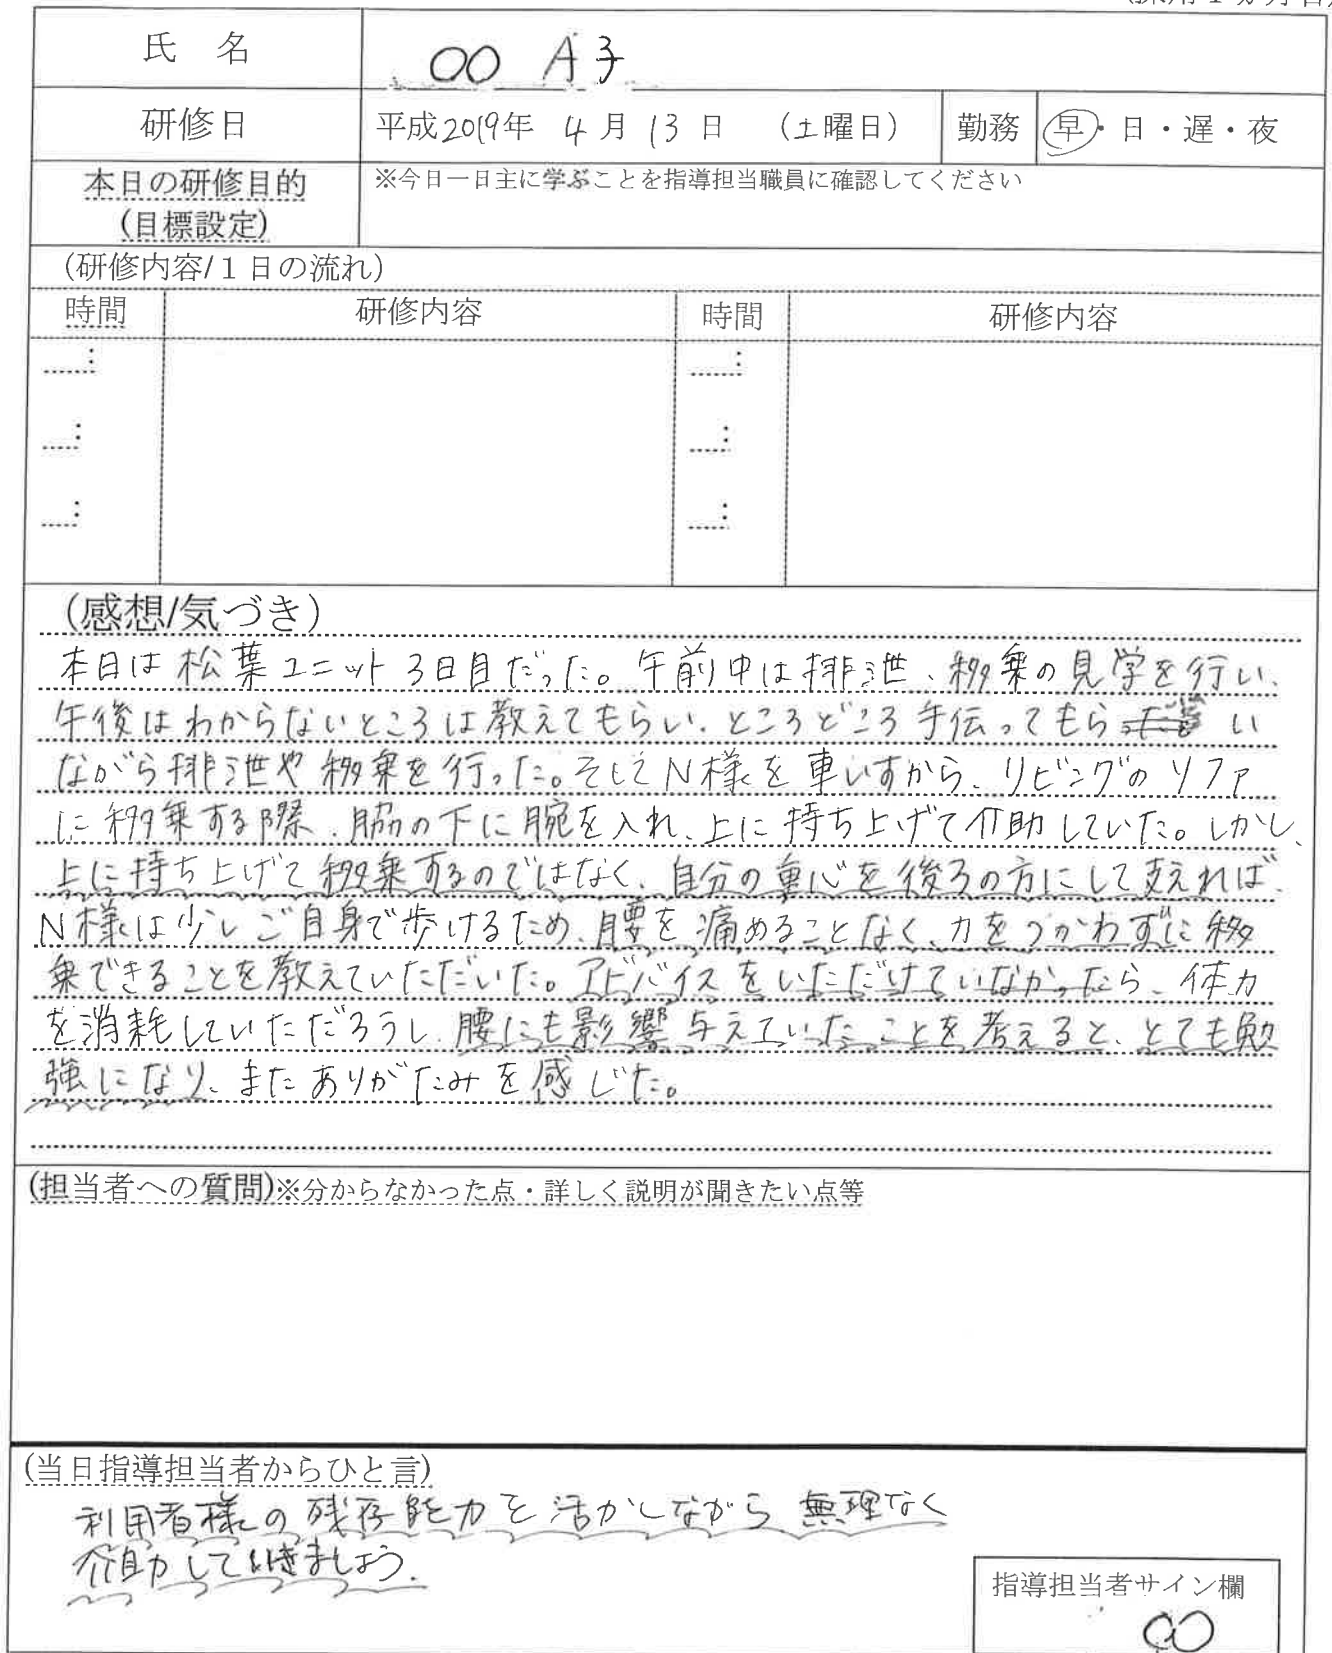 氏 名 〇〇 A子
研修日 平成2019年 4月13日 (土曜日) 勤務 早・日・遅・夜
本日の研修目的 ※今日一日主に学ぶことを指導担当職員に確認してください
(目標設定)
(研修内容/1日の流れ)
時間 研修内容 時間 研修内容
: :
: :
: :
(感想/気づき)
本日は松葉ユニット3日目だった。午前中は排泄、移乗の見学を行い、
午後はわからないところは教えてもらい、ところどころ手伝ってもらい
ながら排泄や移乗を行った。そしてN様を車いすから、リビングのソファ
に移乗する際、脇の下に腕を入れ、上に持ち上げて介助していた。しかし、
上に持ち上げて移乗するのではなく、自分の重心を後ろの方にして支えれば、
N様は少しご自身で歩けるため、腰を痛めることなく、力をつかわずに移
乗できることを教えていただいた。アドバイスをいただけていなかったら、体力
を消耗していただろうし、腰にも影響与えていたことを考えると、とても勉
強になり、またありがたみを感じた。
(担当者への質問)※分からなかった点・詳しく説明が聞きたい点等
(当日指導担当者からひと言)
利用者様の残存能力を活かしながら無理なく
介助していきましょう。
指導担当者サイン欄
〇〇